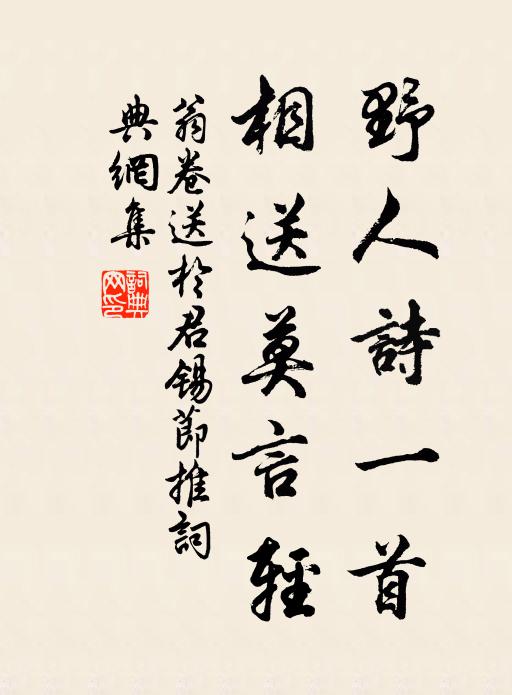 野人詩一首
相送莫言輕
翁卷送於君錫節推詞
典網集
詞典
网印